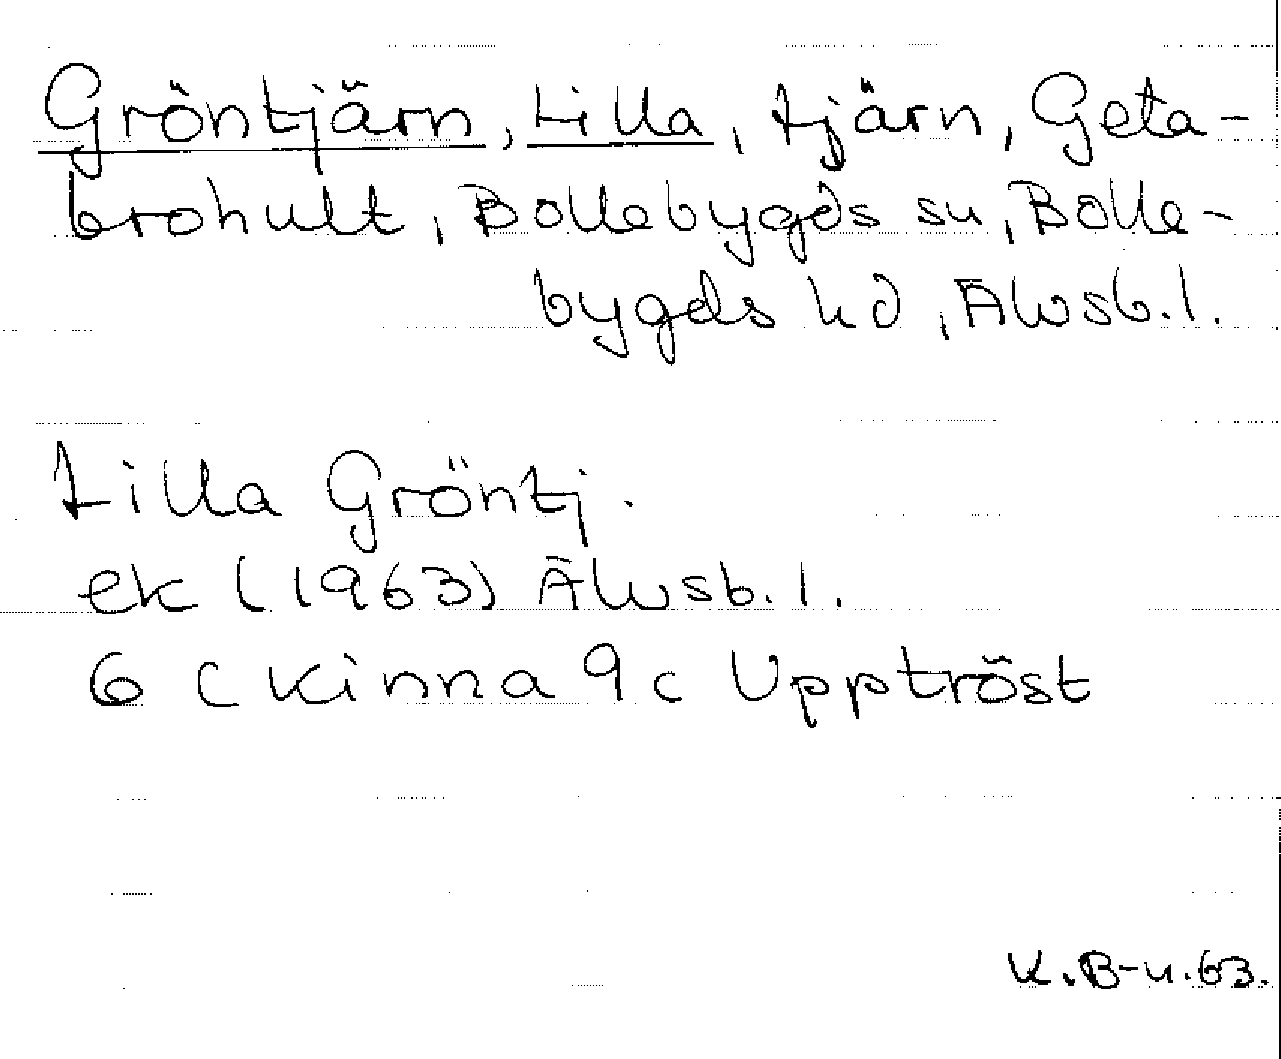 Gröntjärn, Lilla, tjärn, Geta-
brohult, Bollebygds sn, Bolle-
bygds hd, Älvsb. l.
Lilla Gröntj.
ek (1963) Älvsb. l.
6 C Kinna 9 c Upptröst
K.B-n. 63.